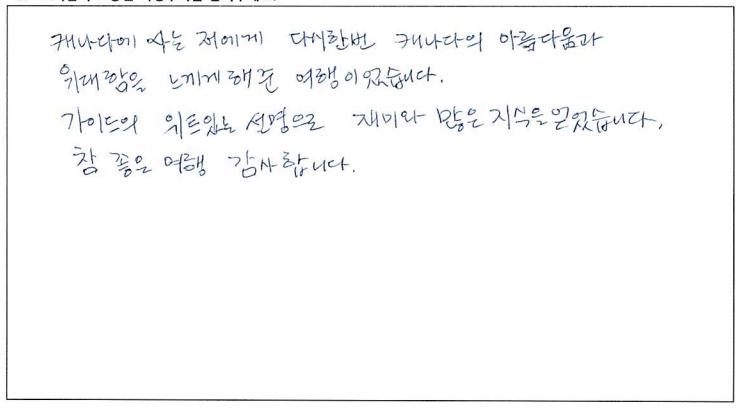 캐나다에 사는 저에게 다시한번 캐나다의 아름다움과
위대함을 느끼게해준 여행이었습니다.
가이드의 위트있는 설명으로 재미와 많은 지식을 얻었습니다.
참 좋은 여행 감사합니다.